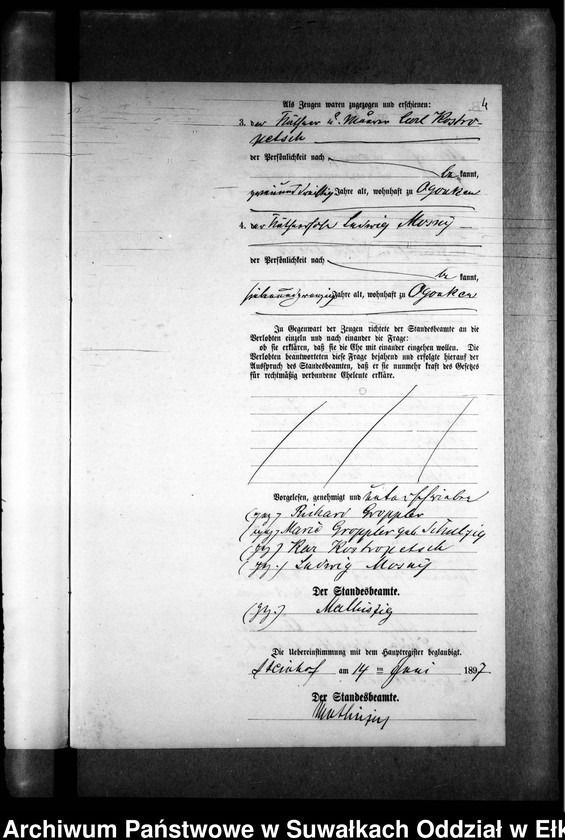 4
Als Zeugen waren zugezogen und erschienen:
3. der Käthner u. Maurer Carl Kostro-
petsch
der Persönlichkeit nach
be kannt,
zweiunddreißig Jahre alt, wohnhaft zu Ogonken
4. der Käthnersohn Ludwig Mosny
der Persönlichkeit nach
be kannt,
siebenundzwanzig Jahre alt, wohnhaft zu Ogonken
In Gegenwart der Zeugen richtete der Standesbeamte an die
Verlobten einzeln und nach einander die Frage:
ob sie erklären, daß sie die Ehe mit einander eingehen wollen. Die
Verlobten beantworteten diese Frage bejahend und erfolgte hierauf der
Ausspruch des Standesbeamten, daß er sie nunmehr kraft des Gesetzes
für rechtmäßig verbundene Eheleute erkläre.
Vorgelesen, genehmigt und unterschrieben
(gez.) Richard Groppler
(gez.) Marie Groppler geb. Schulzig
(gez.) Karl Kostropetsch
(gez.) Ludwig Mosny
Der Standesbeamte.
(gez.)
Die Uebereinstimmung mit dem Hauptregister beglaubigt.
Steinhof am 14 ten Juni 1897
Der Standesbeamte.
Archiwum Państwowe w Suwałkach Oddział w Ełk